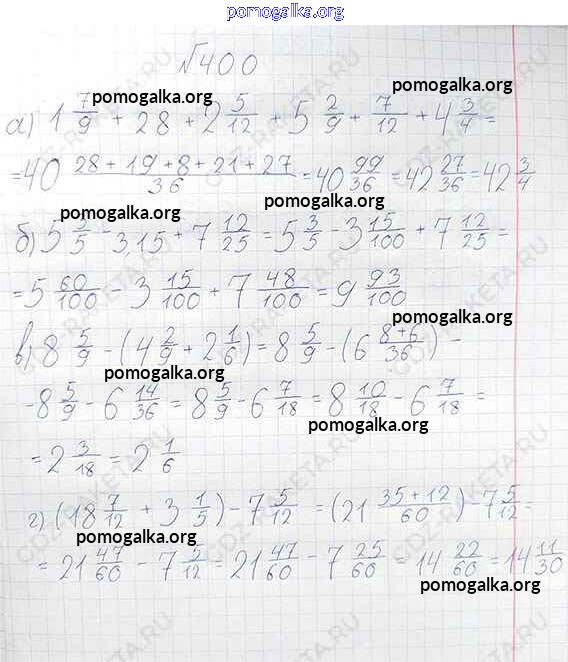 pomogalka.org
№400
pomogalka.org
а) 1 7/9 + 28 + 2 5/12 + 5 2/9 + 7/12 + 4 3/4 =
= 40 (28 + 19 + 8 + 21 + 27)/36 = 40 99/36 = 42 27/36 = 42 3/4
pomogalka.org
б) 5 3/5 - 3,15 + 7 12/25 = 5 3/5 - 3 15/100 + 7 12/25 =
pomogalka.org
= 5 60/100 - 3 15/100 + 7 48/100 = 9 93/100
pomogalka.org
в) 8 5/9 - (4 2/9 + 2 1/6) = 8 5/9 - (6 (8+6)/36) -
pomogalka.org
- 8 5/9 - 6 14/36 = 8 5/9 - 6 7/18 = 8 10/18 - 6 7/18 =
pomogalka.org
= 2 3/18 = 2 1/6
г) (18 7/12 + 3 1/5) - 7 5/12 = (21 (35 + 12)/60) - 7 5/12 =
pomogalka.org
= 21 47/60 - 7 5/12 = 21 47/60 - 7 25/60 = 14 22/60 = 14 11/30
pomogalka.org
GDZ-RAKETA.RU